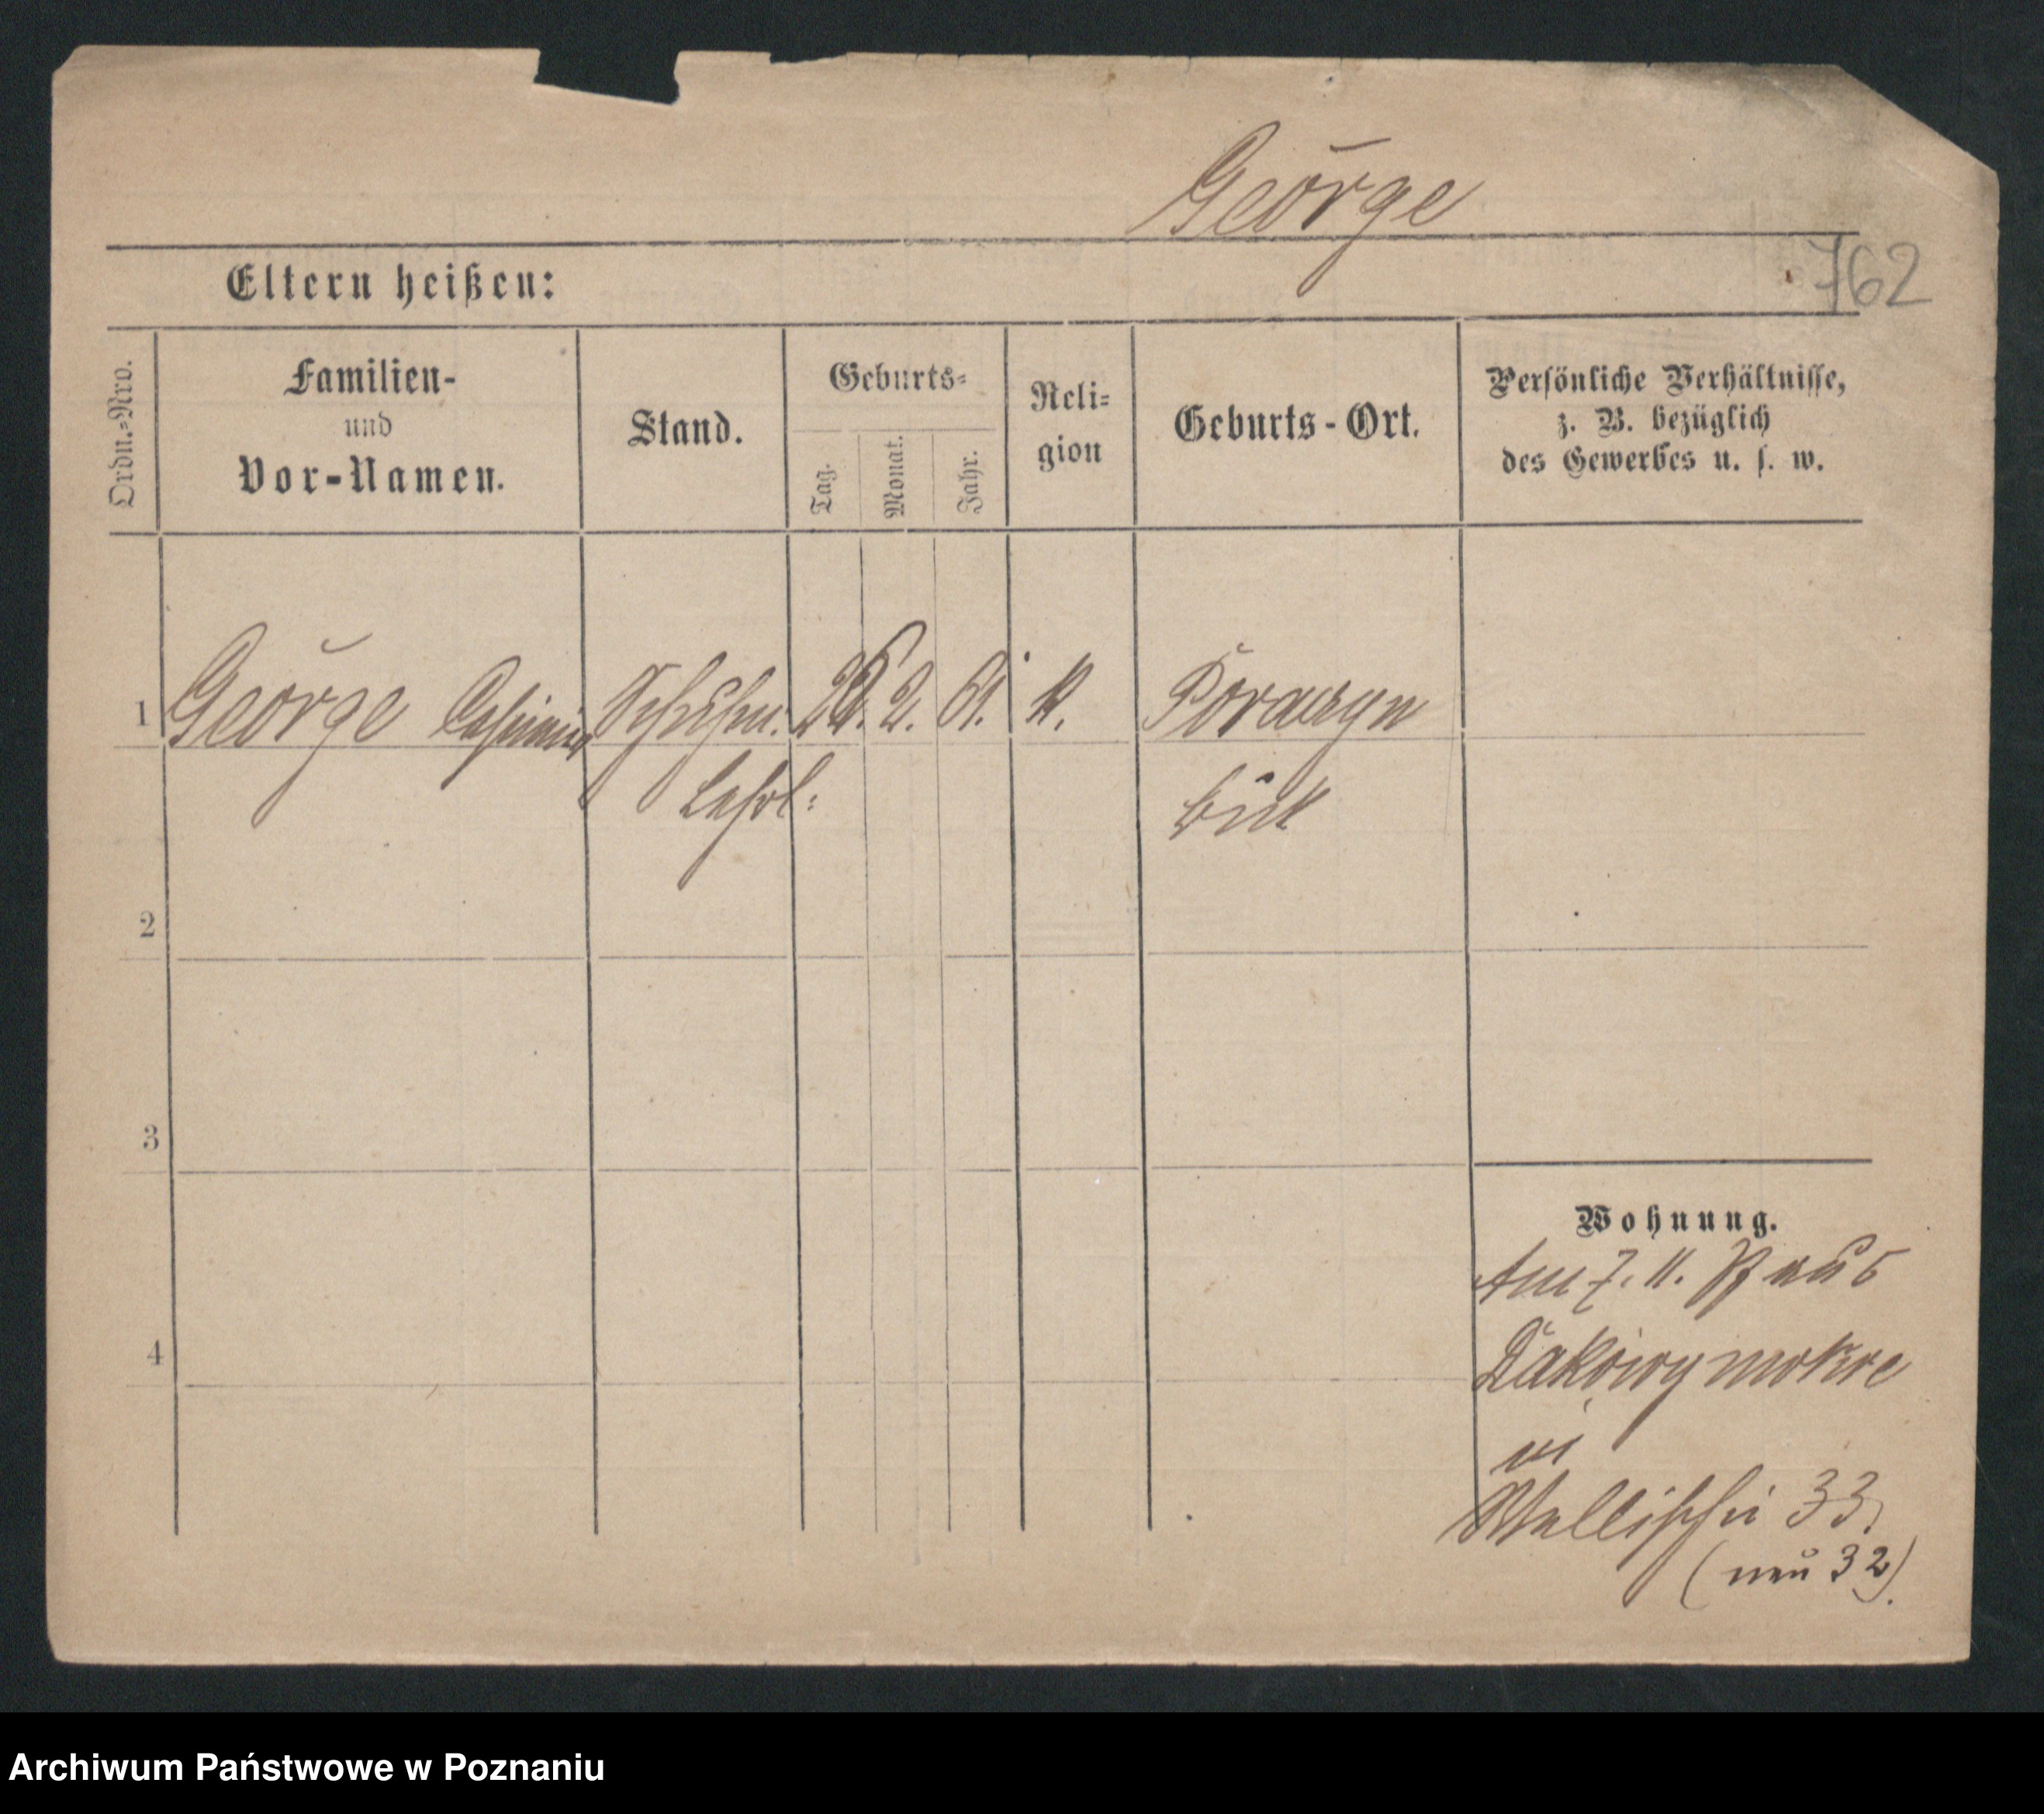 George
762
Eltern heißen:
Ordn.=Nro.
Familien-
und
Vor-Namen.
Stand.
Geburts=
Tag.
Monat.
Jahr.
Reli=
gion
Geburts-Ort.
Persönliche Verhältnisse,
z. B. bezüglich
des Gewerbes u. s. w.
1 George Casimir 2. 61. K.
Lehrl:
Buk
2
3
4
Wohnung.
Am 7. 11. aus
Dakowymokre
Wallischei 33.
(neu 32).
Archiwum Państwowe w Poznaniu